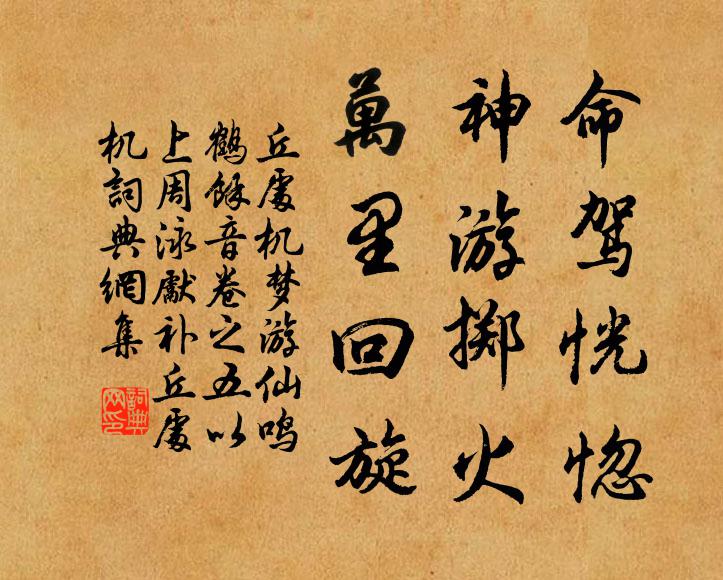 命驾恍惚
神游掷火
萬里回旋
丘處机梦游仙鸣
鶴餘音卷之五以
上周泳獻补丘處
机詞典網集
詞典
网印